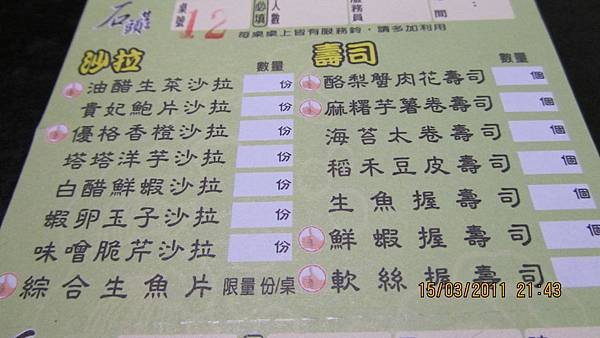 石頭
桌號 12 必填 人數 服務員 間
每桌桌上皆有服務鈴,請多加利用
沙拉 數量
油醋生菜沙拉 份
貴妃鮑片沙拉 份
優格香橙沙拉 份
塔塔洋芋沙拉 份
白醋鮮蝦沙拉 份
蝦卵玉子沙拉 份
味噌脆芹沙拉 份
綜合生魚片 限量 份/桌
壽司 數量
酪梨蟹肉花壽司 個
麻糬芋薯卷壽司 個
海苔太卷壽司 個
稻禾豆皮壽司 個
生魚握壽司 個
鮮蝦握壽司 個
軟絲握壽司 個
15/03/2011 21:43